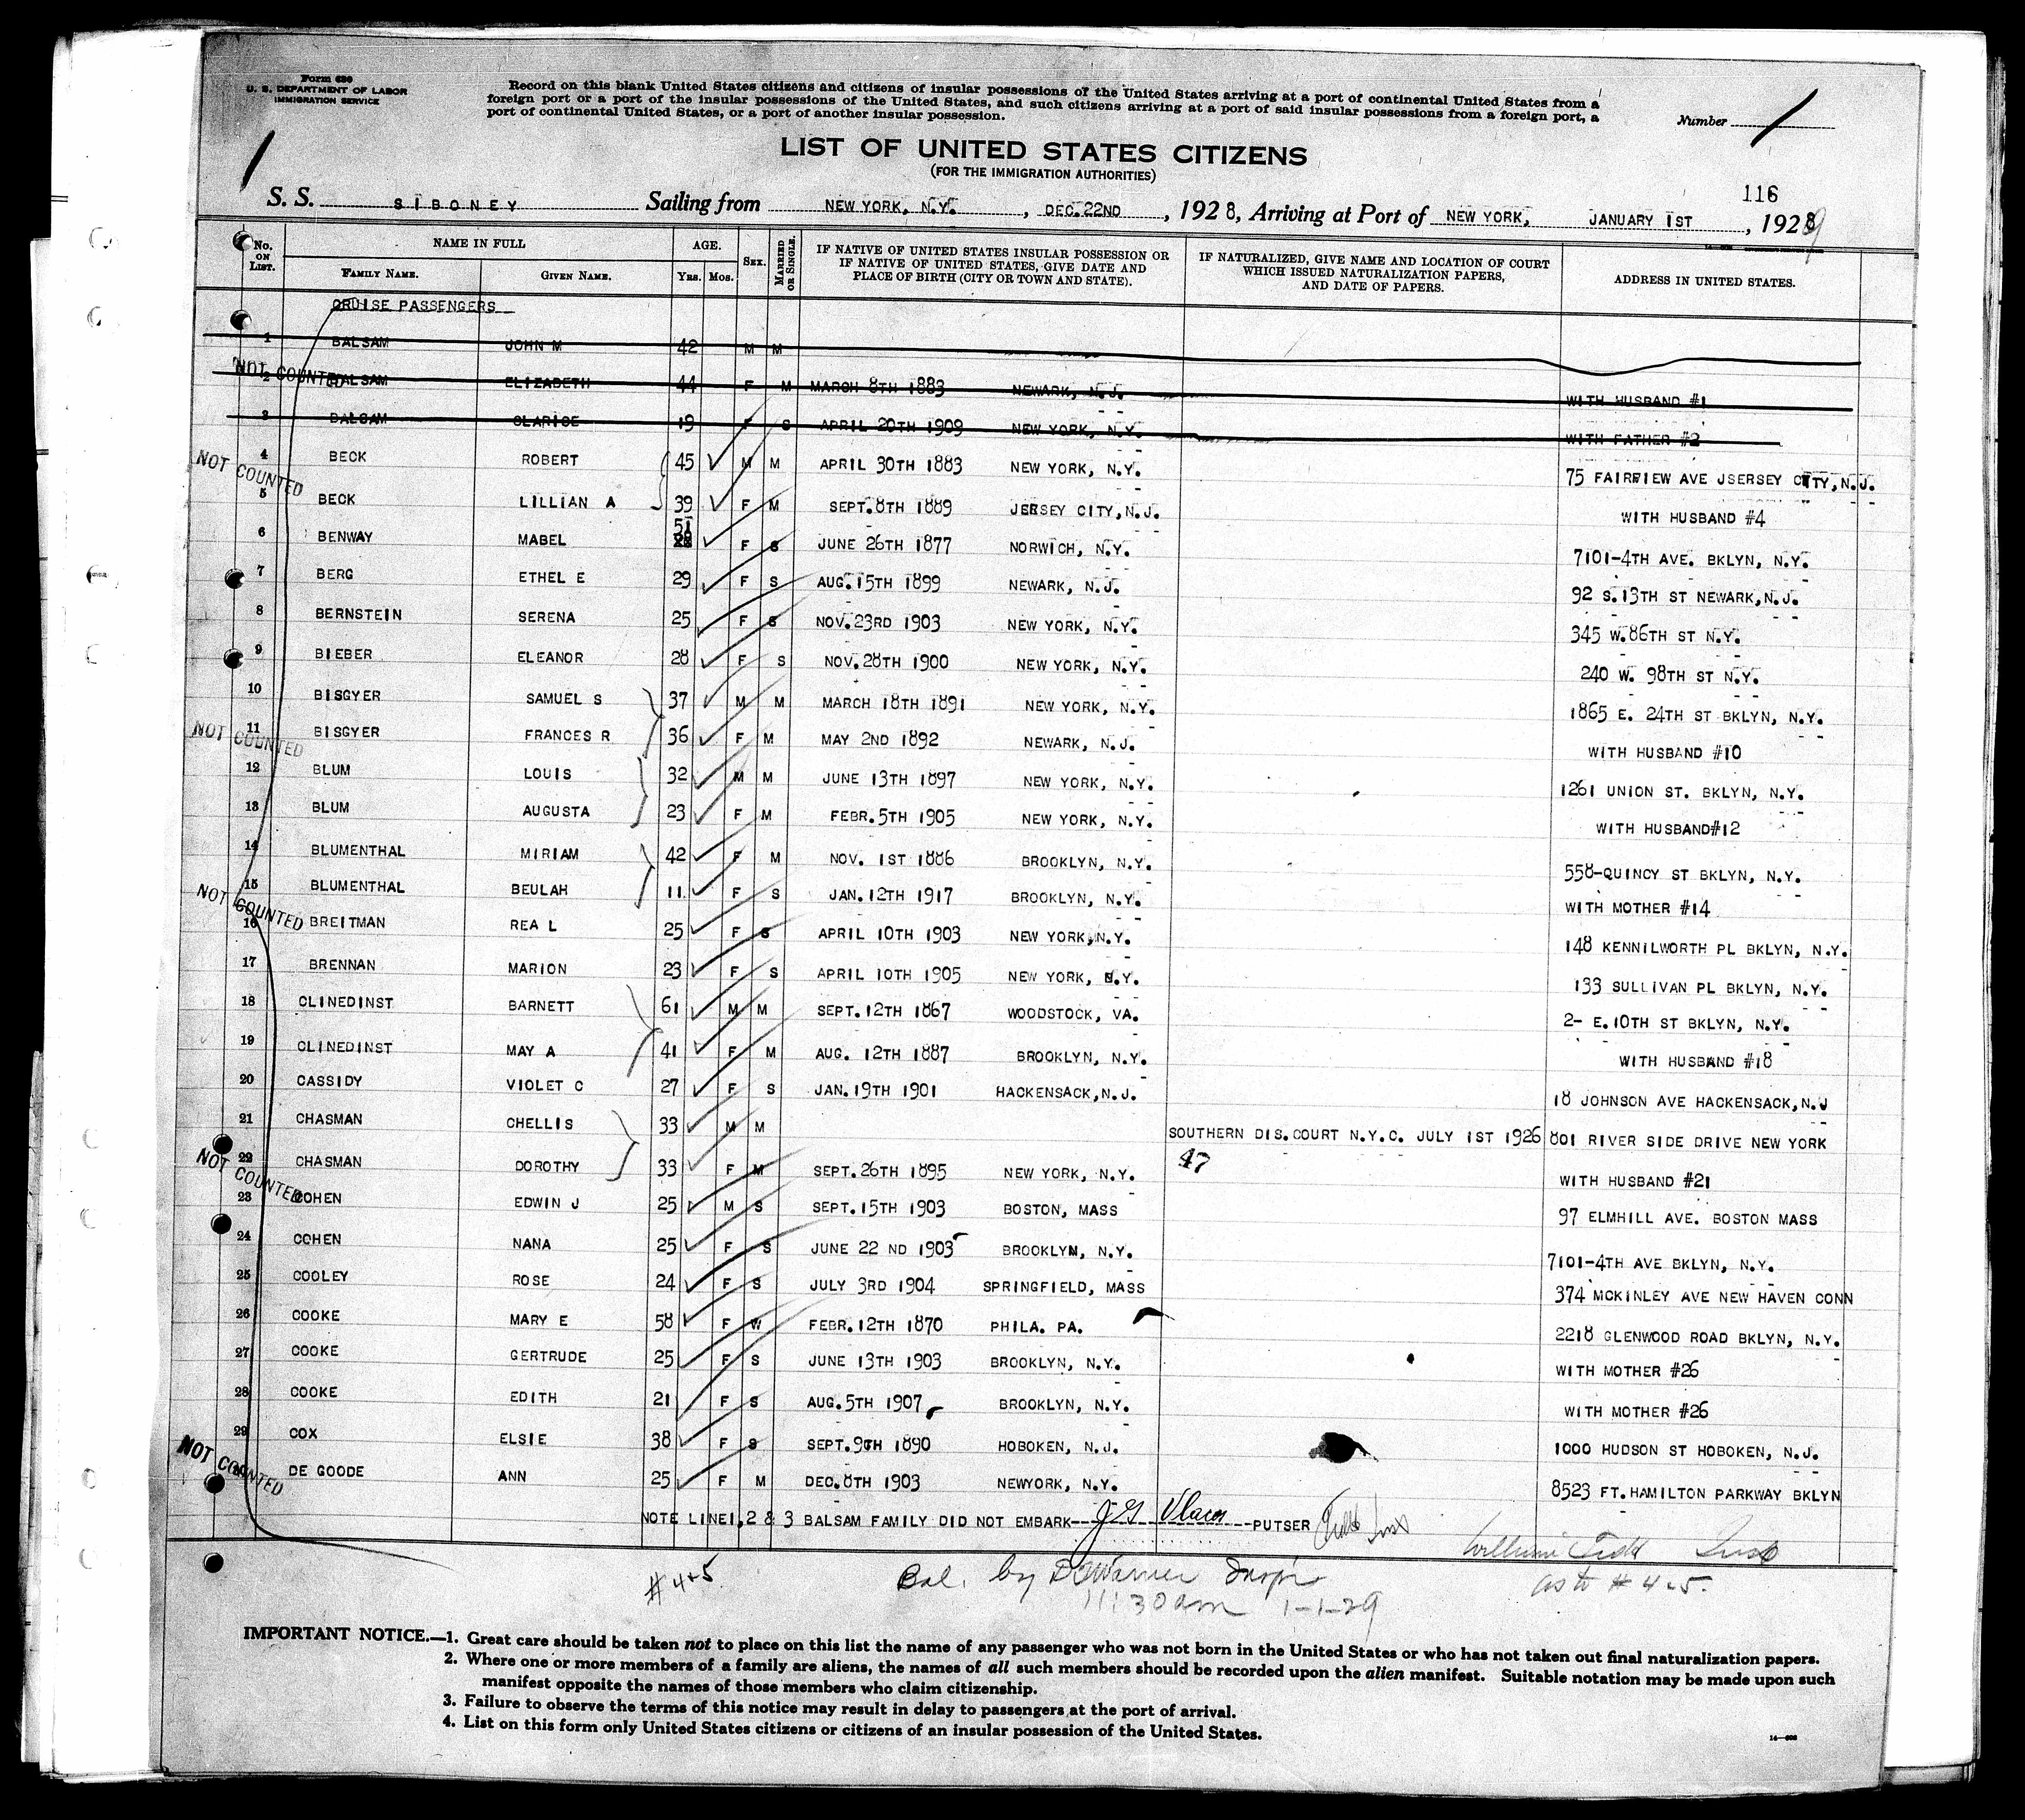 Form 630
U. S. DEPARTMENT OF LABOR
IMMIGRATION SERVICE
Record on this blank United States citizens and citizens of insular possessions of the United States arriving at a port of continental United States from a
foreign port or a port of the insular possessions of the United States, and such citizens arriving at a port of said insular possessions from a foreign port, a
port of continental United States, or a port of another insular possession.
Number 1
1
LIST OF UNITED STATES CITIZENS
(FOR THE IMMIGRATION AUTHORITIES)
116
S. S. SIBONEY Sailing from NEW YORK, N.Y. , DEC.22ND , 1928, Arriving at Port of NEW YORK, JANUARY 1ST , 1929
No. ON LIST. NAME IN FULL FAMILY NAME. GIVEN NAME. AGE. YRS. MOS. SEX. MARRIED OR SINGLE. IF NATIVE OF UNITED STATES INSULAR POSSESSION OR IF NATIVE OF UNITED STATES, GIVE DATE AND PLACE OF BIRTH (CITY OR TOWN AND STATE). IF NATURALIZED, GIVE NAME AND LOCATION OF COURT WHICH ISSUED NATURALIZATION PAPERS, AND DATE OF PAPERS. ADDRESS IN UNITED STATES.
CRUISE PASSENGERS
1 BALSAM JOHN M 42 M M
NOT COUNTED
2 BALSAM ELIZABETH 44 F M MARCH 8TH 1883 NEWARK, N.J. WITH HUSBAND #1
3 BALSAM CLARICE 19 F S APRIL 20TH 1909 NEW YORK, N.Y. WITH FATHER #2
4 BECK ROBERT 45 M M APRIL 30TH 1883 NEW YORK, N.Y. 75 FAIRFIEW AVE JSERSEY CITY,N.J.
NOT COUNTED
5 BECK LILLIAN A 39 F M SEPT.8TH 1889 JERSEY CITY,N.J. WITH HUSBAND #4
6 BENWAY MABEL 51 F S JUNE 26TH 1877 NORWICH, N.Y. 7101-4TH AVE. BKLYN, N.Y.
7 BERG ETHEL E 29 F S AUG.15TH 1899 NEWARK, N.J. 92 S.13TH ST NEWARK,N.J.
8 BERNSTEIN SERENA 25 F S NOV.23RD 1903 NEW YORK, N.Y. 345 W.86TH ST N.Y.
9 BIEBER ELEANOR 28 F S NOV.28TH 1900 NEW YORK, N.Y. 240 W. 98TH ST N.Y.
10 BISGYER SAMUEL S 37 M M MARCH 18TH 1891 NEW YORK, N.Y. 1865 E. 24TH ST BKLYN, N.Y.
NOT COUNTED
11 BISGYER FRANCES R 36 F M MAY 2ND 1892 NEWARK, N.J. WITH HUSBAND #10
12 BLUM LOUIS 32 M M JUNE 13TH 1897 NEW YORK, N.Y. 1261 UNION ST. BKLYN, N.Y.
13 BLUM AUGUSTA 23 F M FEBR.5TH 1905 NEW YORK, N.Y. WITH HUSBAND#12
14 BLUMENTHAL MIRIAM 42 F M NOV. 1ST 1886 BROOKLYN, N.Y. 558-QUINCY ST BKLYN, N.Y.
15 BLUMENTHAL BEULAH 11 F S JAN.12TH 1917 BROOKLYN, N.Y. WITH MOTHER #14
NOT COUNTED
16 BREITMAN REA L 25 F S APRIL 10TH 1903 NEW YORK,N.Y. 148 KENNILWORTH PL BKLYN, N.Y.
17 BRENNAN MARION 23 F S APRIL 10TH 1905 NEW YORK, N.Y. 133 SULLIVAN PL BKLYN, N.Y.
18 CLINEDINST BARNETT 61 M M SEPT.12TH 1867 WOODSTOCK, VA. 2- E.10TH ST BKLYN, N.Y.
19 CLINEDINST MAY A 41 F M AUG. 12TH 1887 BROOKLYN, N.Y. WITH HUSBAND #18
20 CASSIDY VIOLET C 27 F S JAN.19TH 1901 HACKENSACK,N.J. 18 JOHNSON AVE HACKENSACK,N.J
21 CHASMAN CHELLIS 33 M M SOUTHERN DIS.COURT N.Y.C. JULY 1ST 1926 801 RIVER SIDE DRIVE NEW YORK
22 CHASMAN DOROTHY 33 F M SEPT.26TH 1895 NEW YORK, N.Y. 47 WITH HUSBAND #21
NOT COUNTED
23 COHEN EDWIN J 25 M S SEPT.15TH 1903 BOSTON, MASS 97 ELMHILL AVE. BOSTON MASS
24 COHEN NANA 25 F S JUNE 22 ND 1903 BROOKLYN, N.Y. 7101-4TH AVE BKLYN, N.Y.
25 COOLEY ROSE 24 F S JULY 3RD 1904 SPRINGFIELD, MASS 374 MCKINLEY AVE NEW HAVEN CONN
26 COOKE MARY E 58 F W FEBR.12TH 1870 PHILA. PA. 2218 GLENWOOD ROAD BKLYN, N.Y.
27 COOKE GERTRUDE 25 F S JUNE 13TH 1903 BROOKLYN, N.Y. WITH MOTHER #26
28 COOKE EDITH 21 F S AUG.5TH 1907 BROOKLYN, N.Y. WITH MOTHER #26
29 COX ELSIE 38 F S SEPT.9TH 1890 HOBOKEN, N.J. 1000 HUDSON ST HOBOKEN, N.J.
NOT COUNTED
DE GOODE ANN 25 F M DEC.8TH 1903 NEWYORK, N.Y. 8523 FT.HAMILTON PARKWAY BKLYN
NOTE LINE1,2 & 3 BALSAM FAMILY DID NOT EMBARK-- --PUTSER
#4+5 by 11:30am 1-1-29 as to #4-5.
IMPORTANT NOTICE.—1. Great care should be taken not to place on this list the name of any passenger who was not born in the United States or who has not taken out final naturalization papers.
2. Where one or more members of a family are aliens, the names of all such members should be recorded upon the alien manifest. Suitable notation may be made upon such
manifest opposite the names of those members who claim citizenship.
3. Failure to observe the terms of this notice may result in delay to passengers at the port of arrival.
4. List on this form only United States citizens or citizens of an insular possession of the United States.